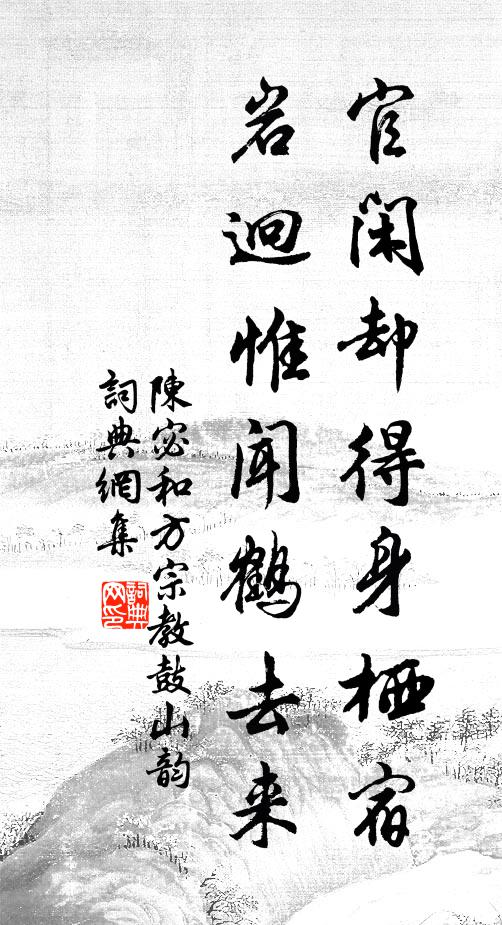 官闲却得身栖宿
岩迥惟闻鹤去来
陳宓和方宗教鼓山韵
詞典網集
詞典网印